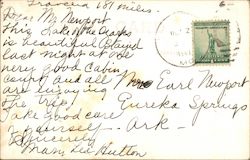 Traveled 181 miles.
Dear Mrs Newport
This Lake of the Ozarks
is beautiful
last night at the
very good Cabin
Court and all
are enjoying
the trip.
Take good care
of yourself.
Sincerely
Mary Lee Hutton
Mrs Earl Newport
Eureka Springs
Ark